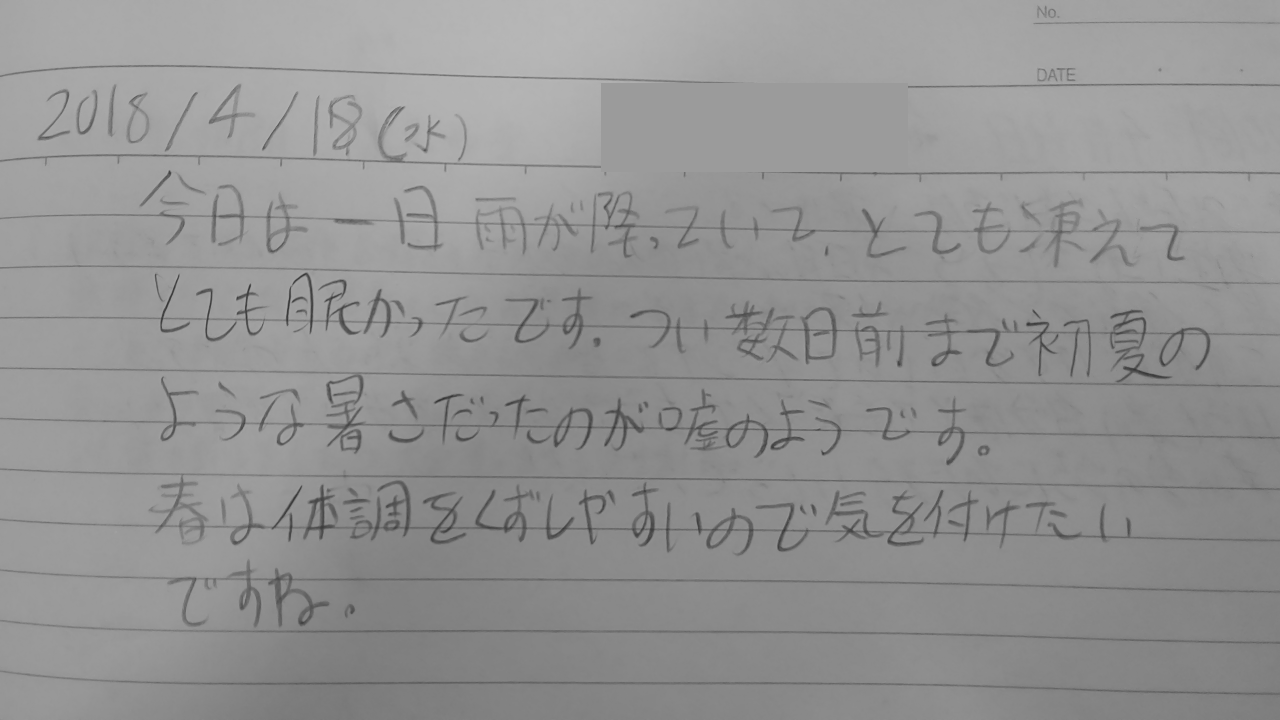 No.
DATE
2018/4/18(水)
今日は一日雨が降っていて、とても凍えて
とても眠かったです。つい数日前まで初夏の
ような暑さだったのが嘘のようです。
春は体調をくずしやすいので気を付けたい
ですね。